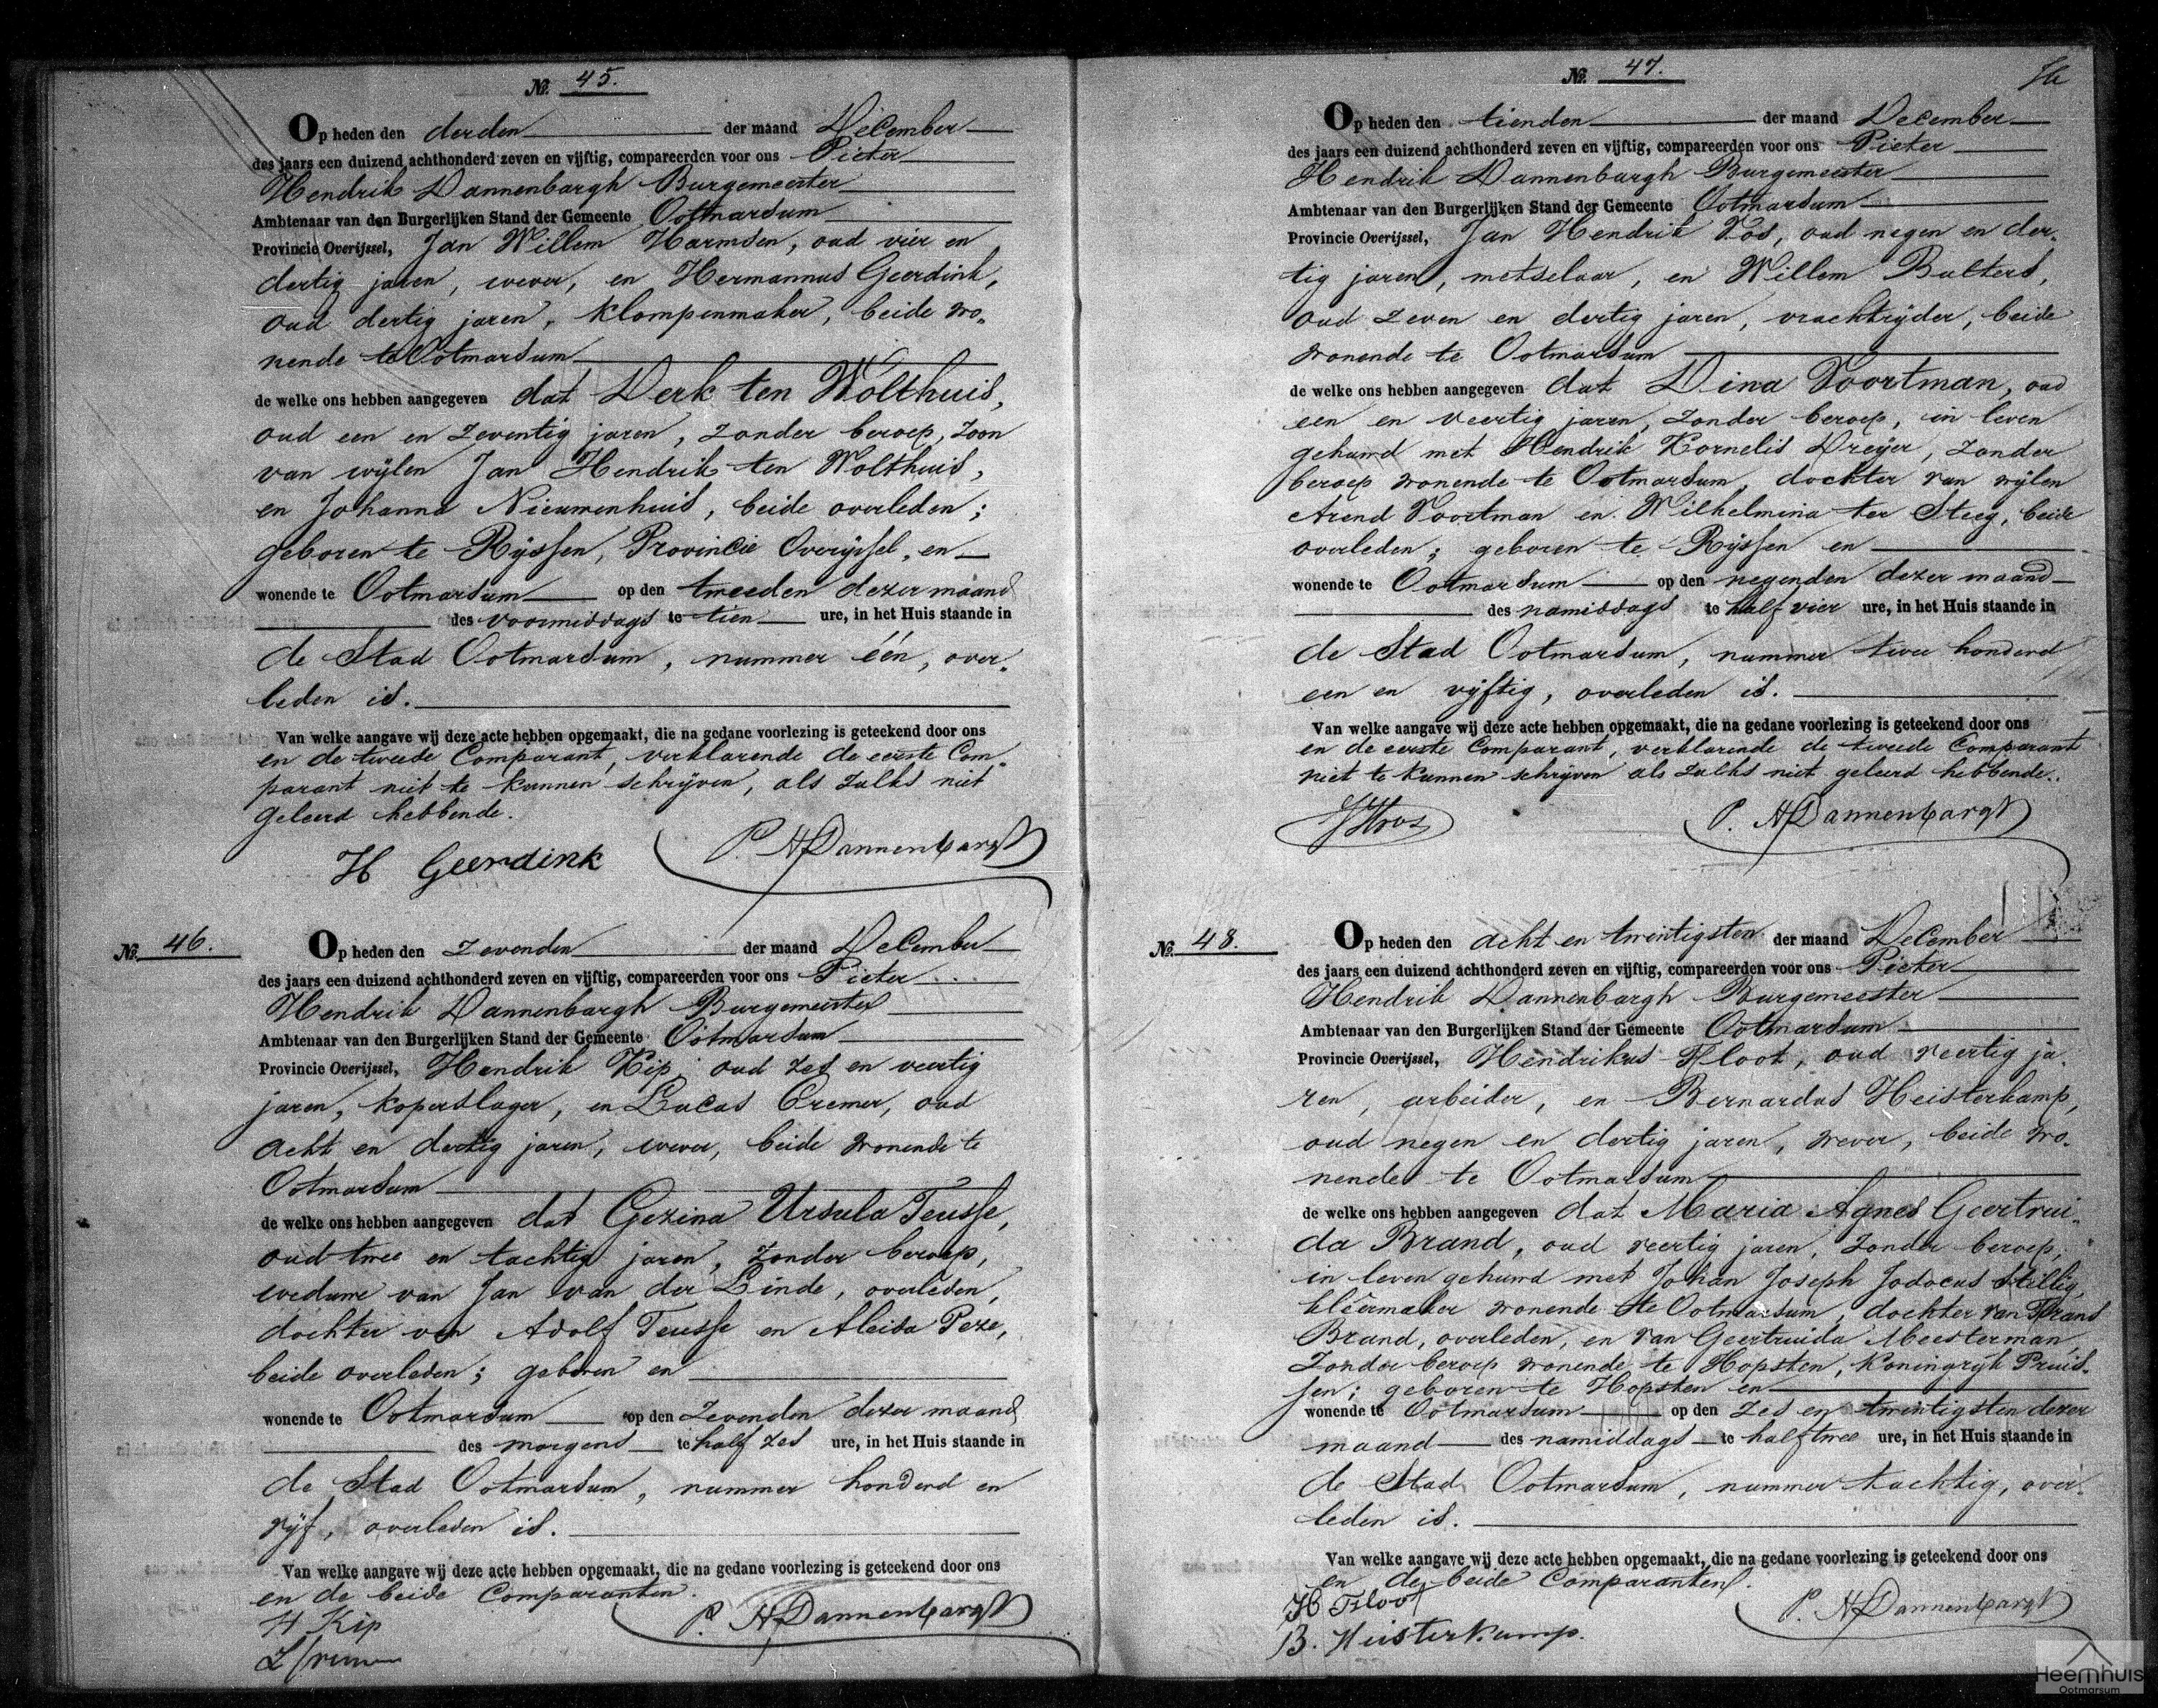 No. 45.
Op heden den derden der maand December
des jaars een duizend achthonderd zeven en vijftig, compareerden voor ons Pieter
Hendrik Dannenbargh Burgemeester
Ambtenaar van den Burgerlijken Stand der Gemeente Ootmarsum
Provincie Overijssel, Jan Willem Harmsen, oud vier en
dertig jaren, wever, en Hermannus Geerdink,
oud dertig jaren, klompenmaker, beide wo„
nende te Ootmarsum
de welke ons hebben aangegeven dat Derk ten Wolthuis,
oud een en zeventig jaren, zonder beroep, zoon
van wijlen Jan Hendrik ten Wolthuis,
en Johanna Nieuwenhuis, beide overleden;
geboren te Rijssen, Provincie Overijssel, en
wonende te Ootmarsum op den tweeden dezer maand
des voormiddags te tien ure, in het Huis staande in
de Stad Ootmarsum, nummer één, over„
leden is.
Van welke aangave wij deze acte hebben opgemaakt, die na gedane voorlezing is geteekend door ons
en de tweede Comparant, verklarende de eerste Com„
parant niet te kunnen schrijven, als zulks niet
geleerd hebbende.
H Geerdink P. H Dannenbargh
No. 46.
Op heden den zevenden der maand December
des jaars een duizend achthonderd zeven en vijftig, compareerden voor ons Pieter
Hendrik Dannenbargh Burgemeester
Ambtenaar van den Burgerlijken Stand der Gemeente Ootmarsum
Provincie Overijssel, Hendrik Kip, oud zes en veertig
jaren, koperslager, en Lucas Cremer, oud
acht en dertig jaren, wever, beide wonende te
Ootmarsum
de welke ons hebben aangegeven dat Gezina Ursula Teusse,
oud twee en tachtig jaren, zonder beroep,
weduwe van Jan van der Linde, overleden,
dochter van Adolf Teusse en Aleida Peze,
beide overleden; geboren en
wonende te Ootmarsum op den zevenden dezer maand
des morgens te half zes ure, in het Huis staande in
de Stad Ootmarsum, nummer honderd en
vijf, overleden is.
Van welke aangave wij deze acte hebben opgemaakt, die na gedane voorlezing is geteekend door ons
en de beide Comparanten.
H Kip P. H Dannenbargh
L Cremer
No. 47.
Op heden den tienden der maand December
des jaars een duizend achthonderd zeven en vijftig, compareerden voor ons Pieter
Hendrik Dannenbargh Burgemeester
Ambtenaar van den Burgerlijken Stand der Gemeente Ootmarsum
Provincie Overijssel, Jan Hendrik Vos, oud negen en der„
tig jaren, metselaar, en Willem Bulters,
oud zeven en dertig jaren, vrachtrijder, beide
wonende te Ootmarsum
de welke ons hebben aangegeven dat Dina Voortman, oud
een en veertig jaren, zonder beroep, in leven
gehuwd met Hendrik Kornelis Dreijer, zonder
beroep wonende te Ootmarsum, dochter van wijlen
Arend Voortman en Wilhelmina ter Steeg, beide
overleden; geboren te Rijssen en
wonende te Ootmarsum op den negenden dezer maand
des namiddags te half vier ure, in het Huis staande in
de Stad Ootmarsum, nummer twee honderd
een en vijftig, overleden is.
Van welke aangave wij deze acte hebben opgemaakt, die na gedane voorlezing is geteekend door ons
en de eerste Comparant, verklarende de tweede Comparant
niet te kunnen schrijven als zulks niet geleerd hebbende.
JHVos P. H Dannenbargh
No. 48.
Op heden den acht en twintigsten der maand December
des jaars een duizend achthonderd zeven en vijftig, compareerden voor ons Pieter
Hendrik Dannenbargh Burgemeester
Ambtenaar van den Burgerlijken Stand der Gemeente Ootmarsum
Provincie Overijssel, Hendrikus Floot, oud veertig ja„
ren, arbeider, en Bernardus Heisterkamp,
oud negen en dertig jaren, wever, beide wo„
nende te Ootmarsum
de welke ons hebben aangegeven dat Maria Agnes Geertrui„
da Brand, oud veertig jaren, zonder beroep,
in leven gehuwd met Johan Joseph Jodocus Stillig,
kleêrmaker wonende te Ootmarsum, dochter van Frans
Brand, overleden, en van Geertruida Meesterman
zonder beroep wonende te Hopsten, Koningrijk Pruis„
sen; geboren te Hopsten en
wonende te Ootmarsum op den zes en twintigsten dezer
maand des namiddags te half twee ure, in het Huis staande in
de Stad Ootmarsum, nummer tachtig, over„
leden is.
Van welke aangave wij deze acte hebben opgemaakt, die na gedane voorlezing is geteekend door ons
en de beide Comparanten.
H Floot P. H Dannenbargh
B. Heisterkamp.
Heemhuis
Ootmarsum